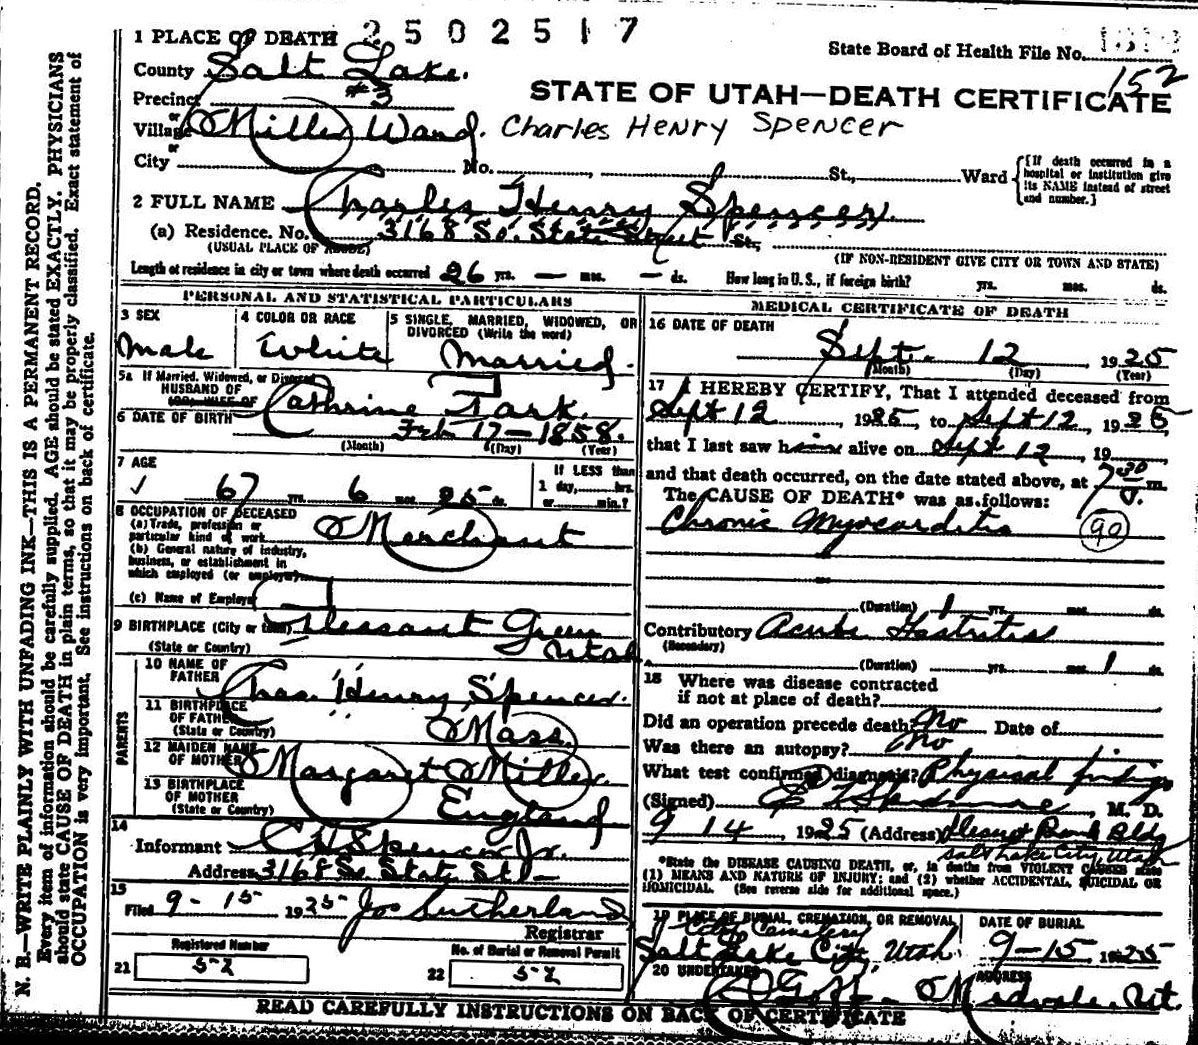 2502517
1 PLACE OF DEATH
State Board of Health File No.
152
County Salt Lake.
Precinct #3
STATE OF UTAH—DEATH CERTIFICATE
or
Village Miller Ward. Charles Henry Spencer
or
City No. , St., Ward {[If death occurred in a hospital or institution give its NAME instead of street and number.]
2 FULL NAME Charles Henry Spencer.
(a) Residence. No. 3168 So. State Street St.,
(USUAL PLACE OF ABODE) (IF NON-RESIDENT GIVE CITY OR TOWN AND STATE)
Length of residence in city or town where death occurred 26 yrs. — mos. — ds. How long in U. S., if foreign birth? yrs. mos. ds.
PERSONAL AND STATISTICAL PARTICULARS
3 SEX
Male
4 COLOR OR RACE
White
5 SINGLE, MARRIED, WIDOWED, OR
DIVORCED (Write the word)
Married.
5a If Married, Widowed, or Divorced
HUSBAND OF
(OR) WIFE OF Cathrine
6 DATE OF BIRTH Feb 17—1858.
(Month) (Day) (Year)
7 AGE
67 yrs. 6 mos. 25 ds.
If LESS than
1 day, hrs.
or min.?
8 OCCUPATION OF DECEASED
(a) Trade, profession or
particular kind of work Merchant
(b) General nature of industry,
business, or establishment in
which employed (or employer)
(c) Name of Employer
9 BIRTHPLACE (City or town) Pleasant Green
(State or Country) Utah
PARENTS
10 NAME OF
FATHER Chas. Henry Spencer.
11 BIRTHPLACE
OF FATHER " " Mass.
(State or Country)
12 MAIDEN NAME
OF MOTHER Margaret Miller
13 BIRTHPLACE
OF MOTHER England
(State or Country)
14
Informant C H Spencer Jr.
Address 3168 So. State St.—
15
Filed 9-15 1925- Jos Sutherland
Registrar
Registered Number
21 52
No. of Burial or Removal Permit
22 52
MEDICAL CERTIFICATE OF DEATH
16 DATE OF DEATH
Sept. 12 1925
(Month) (Day) (Year)
17 I HEREBY CERTIFY, That I attended deceased from
Sept 12, 1925, to Sept 12, 1925,
that I last saw him alive on Sept 12, 19
and that death occurred, on the date stated above, at 7 30 m.
The CAUSE OF DEATH* was as follows:
Chronic Myocarditis 90
(Duration) 1 yrs. mos. ds.
Contributory Acute Gastritis
(Secondary)
(Duration) yrs. mos. 1 ds.
18 Where was disease contracted
if not at place of death?
Did an operation precede death? No Date of
Was there an autopsy? No
What test confirmed diagnosis? Physical findings
(Signed) , M. D.
9 14, 1925 (Address) Bank Bldg
Salt Lake City, Utah
*State the DISEASE CAUSING DEATH, or, in deaths from VIOLENT CAUSES state
(1) MEANS AND NATURE OF INJURY; and (2) whether ACCIDENTAL, SUICIDAL OR
HOMICIDAL. (See reverse side for additional space.)
19 PLACE OF BURIAL, CREMATION, OR REMOVAL
City Cemetery
Salt Lake City, Utah
DATE OF BURIAL
9-15 1925
20 UNDERTAKER
Goff
ADDRESS
Midvale. Ut.
READ CAREFULLY INSTRUCTIONS ON BACK OF CERTIFICATE
N. B.—WRITE PLAINLY WITH UNFADING INK—THIS IS A PERMANENT RECORD.
Every item of information should be carefully supplied. AGE should be stated EXACTLY. PHYSICIANS
should state CAUSE OF DEATH in plain terms, so that it may be properly classified. Exact statement of
OCCUPATION is very important. See instructions on back of certificate.